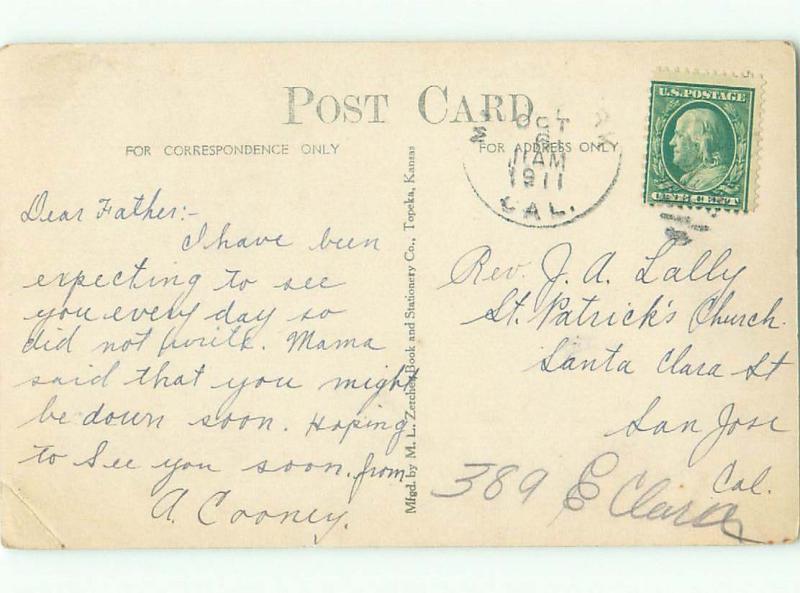 POST CARD
FOR CORRESPONDENCE ONLY
FOR ADDRESS ONLY
U.S. POSTAGE
ONE CENT
OCT
6
11 AM
1911
CAL.
Dear Father:-
I have been
expecting to see
you every day so
did not write. Mama
said that you might
be down soon. Hoping
to see you soon. from
A. Cooney.
Mfgd. by M. L. Zercher Book and Stationery Co., Topeka, Kansas
Rev. J. A. Lally
St. Patrick's Church.
Santa Clara St
San Jose
Cal.
389 E Clara